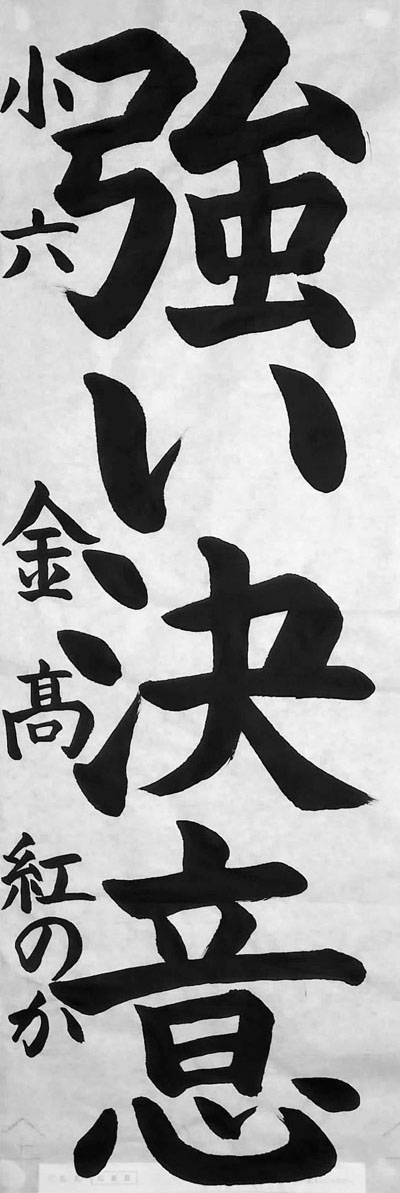 強い決意
小六 金髙 紅のか